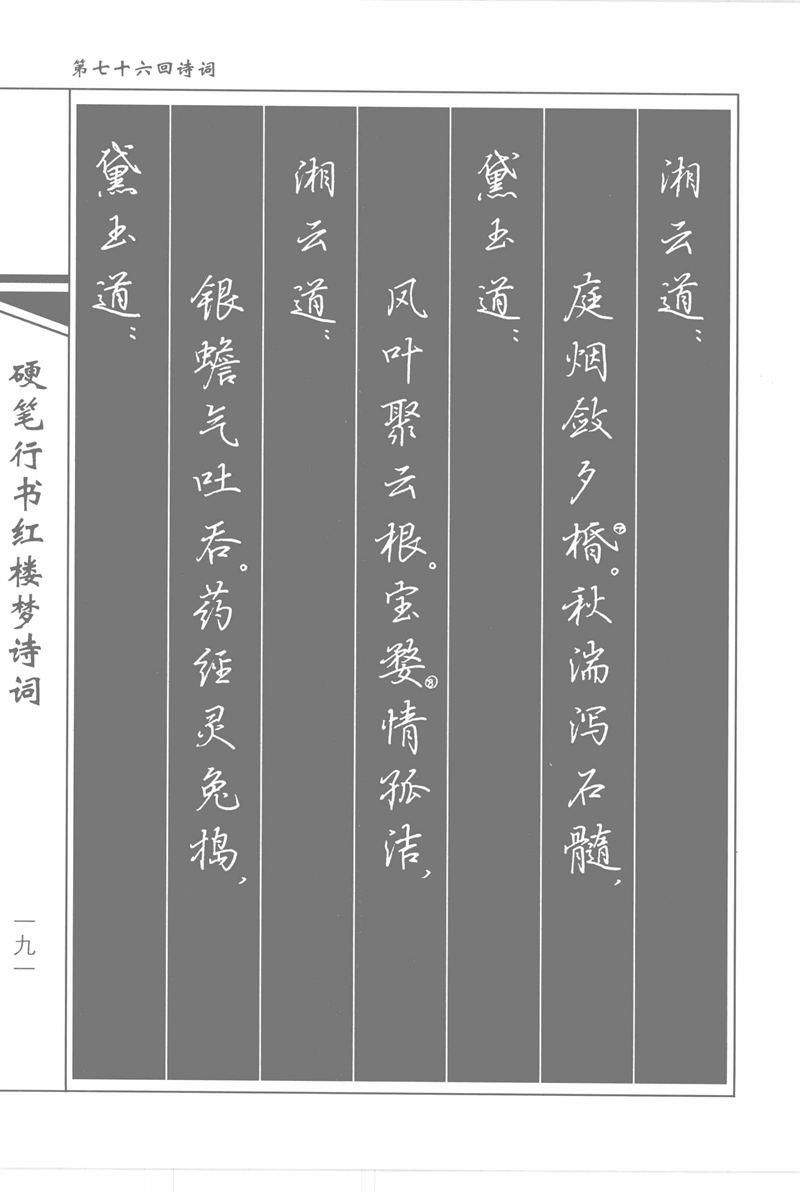 第七十六回诗词
湘云道：
庭烟敛夕棔⑦。秋湍泻石髓，
黛玉道：
风叶聚云根。宝婺⑧情孤洁，
湘云道：
银蟾气吐吞。药经灵兔捣，
黛玉道：
硬笔行书红楼梦诗词
一九一